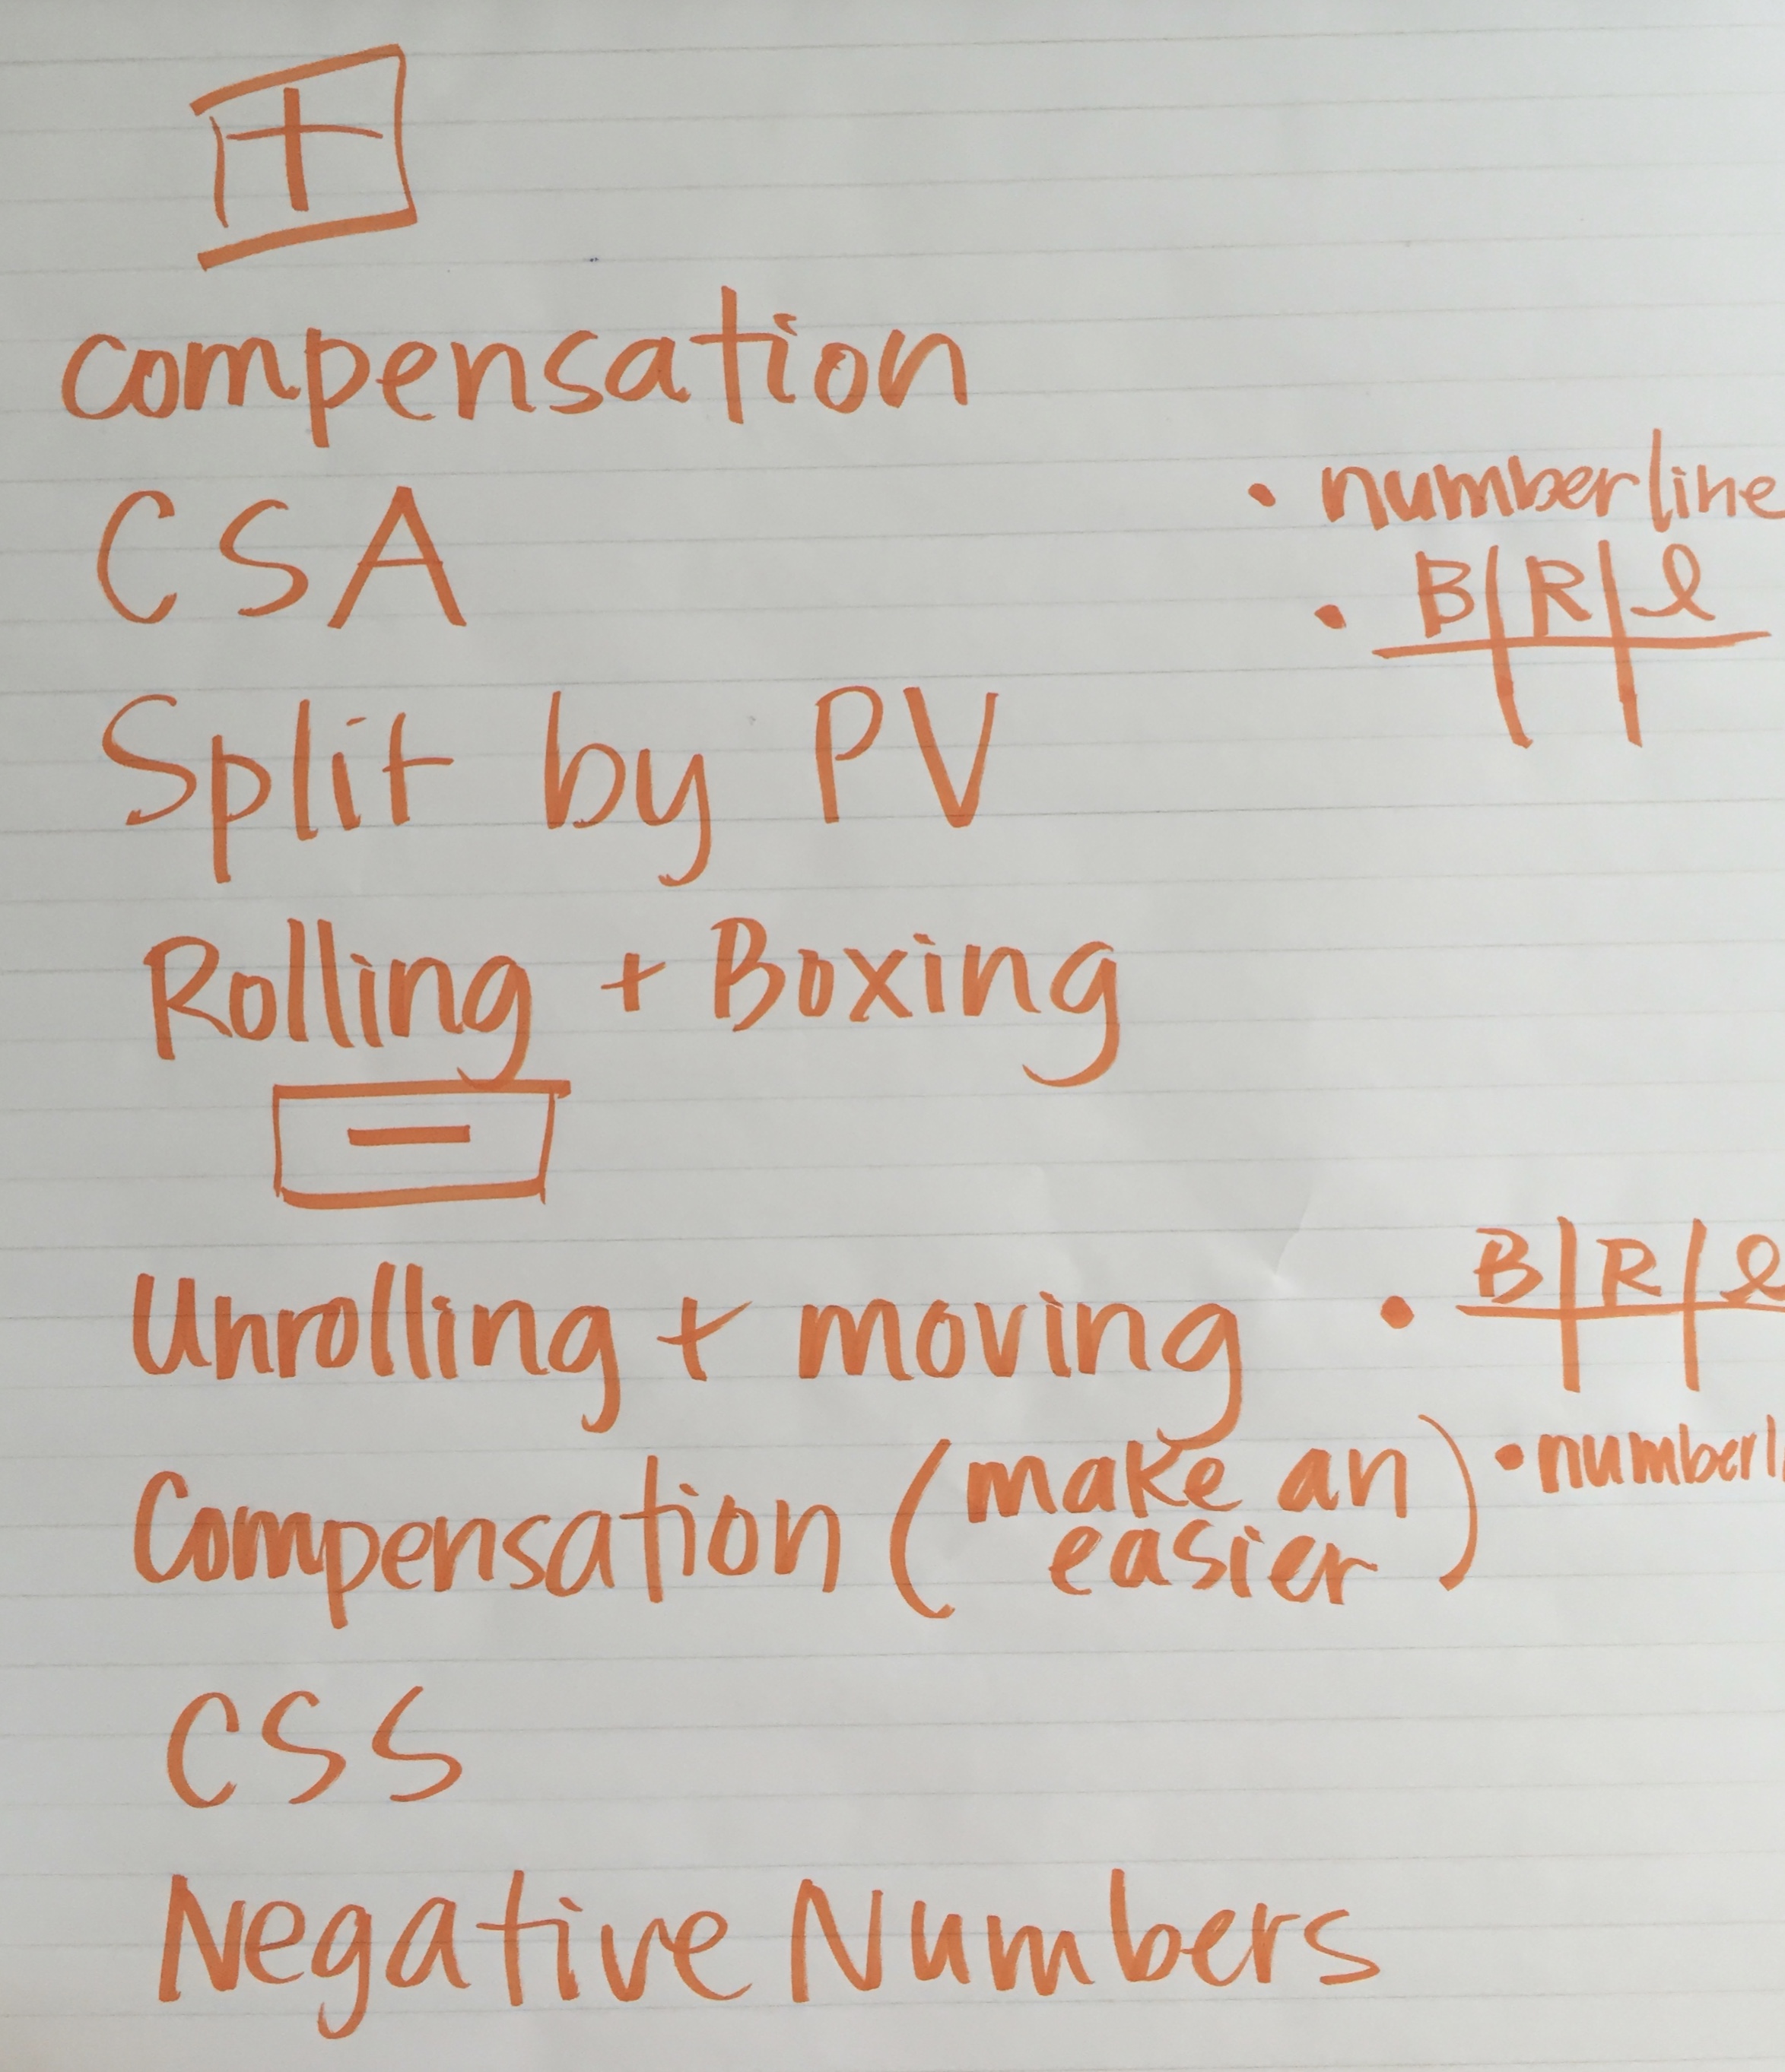 +
compensation
CSA
• numberline
• B R l
Split by PV
Rolling + Boxing
-
Unrolling + moving • B R l
Compensation (make an easier) • numberl
CSS
Negative Numbers